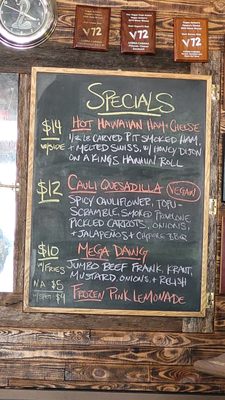 V72
V72
V72
SPECIALS
$14 HOT HAWAIIAN HAM + CHEESE
W/SIDE 1/2 LB CARVED PIT SMOKED HAM,
+ MELTED SWISS, W/ HONEY DIJON
ON A KINGS HAWAIIAN ROLL
$12 CAULI QUESADILLA (VEGAN)
SPICY CAULIFLOWER, TOFU-
SCRAMBLE, SMOKED PROVOLONE,
PICKLED CARROTS, ONIONS,
+ JALAPEÑOS + CHIPOTLE BBQ
$10 MEGA DAWG
W/FRIES JUMBO BEEF FRANK, KRAUT,
MUSTARD, ONIONS, + RELISH
N/A $5 FROZEN PINK LEMONADE
$4